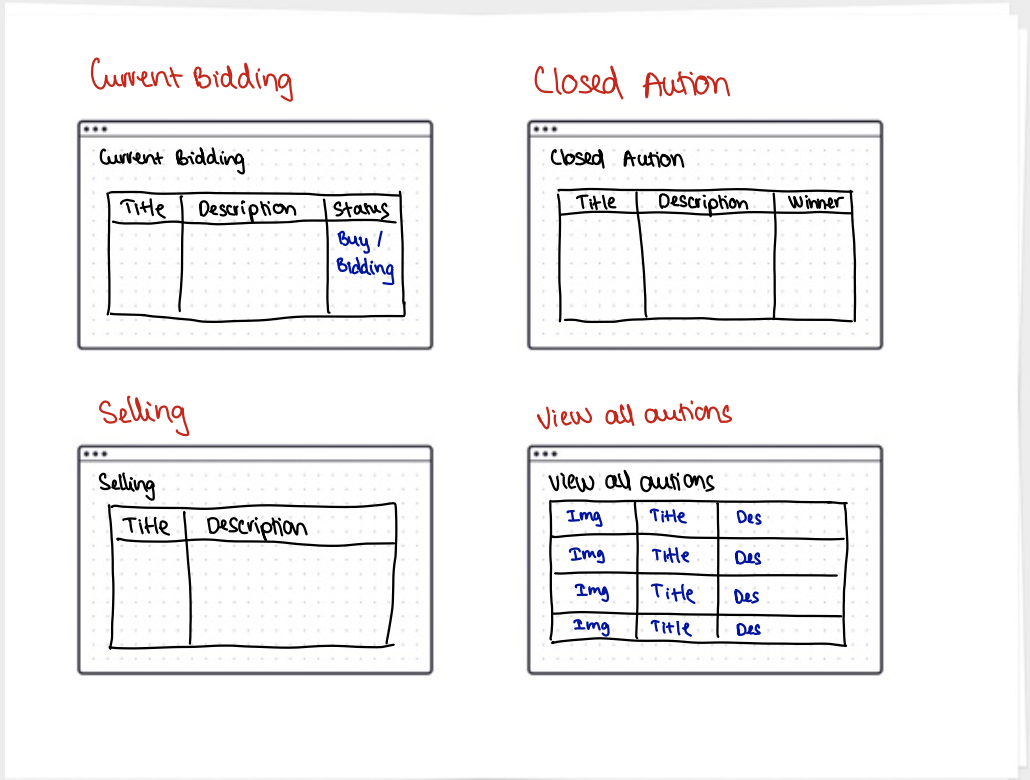 Current Bidding
Current Bidding
Title Description Status
Buy /
Bidding
Closed Aution
Closed Aution
Title Description Winner
Selling
Selling
Title Description
View all autions
View all autions
Img Title Des
Img Title Des
Img Title Des
Img Title Des